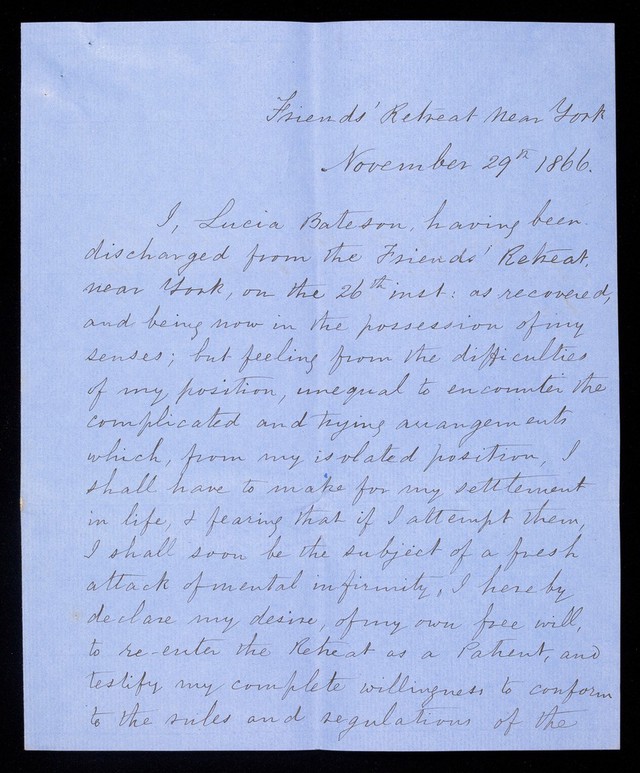 Friends' Retreat near York
November 29th 1866.
I, Lucia Bateson, having been
discharged from the Friends' Retreat,
near York, on the 26th inst: as recovered,
and being now in the possession of my
senses; but feeling from the difficulties
of my position, unequal to encounter the
complicated and trying arrangements
which, from my isolated position, I
shall have to make for my settlement
in life, & fearing that if I attempt them,
I shall soon be the subject of a fresh
attack of mental infirmity, I hereby
declare my desire, of my own free will,
to re-enter the Retreat as a Patient, and
testify my complete willingness to conform
to the rules and regulations of the